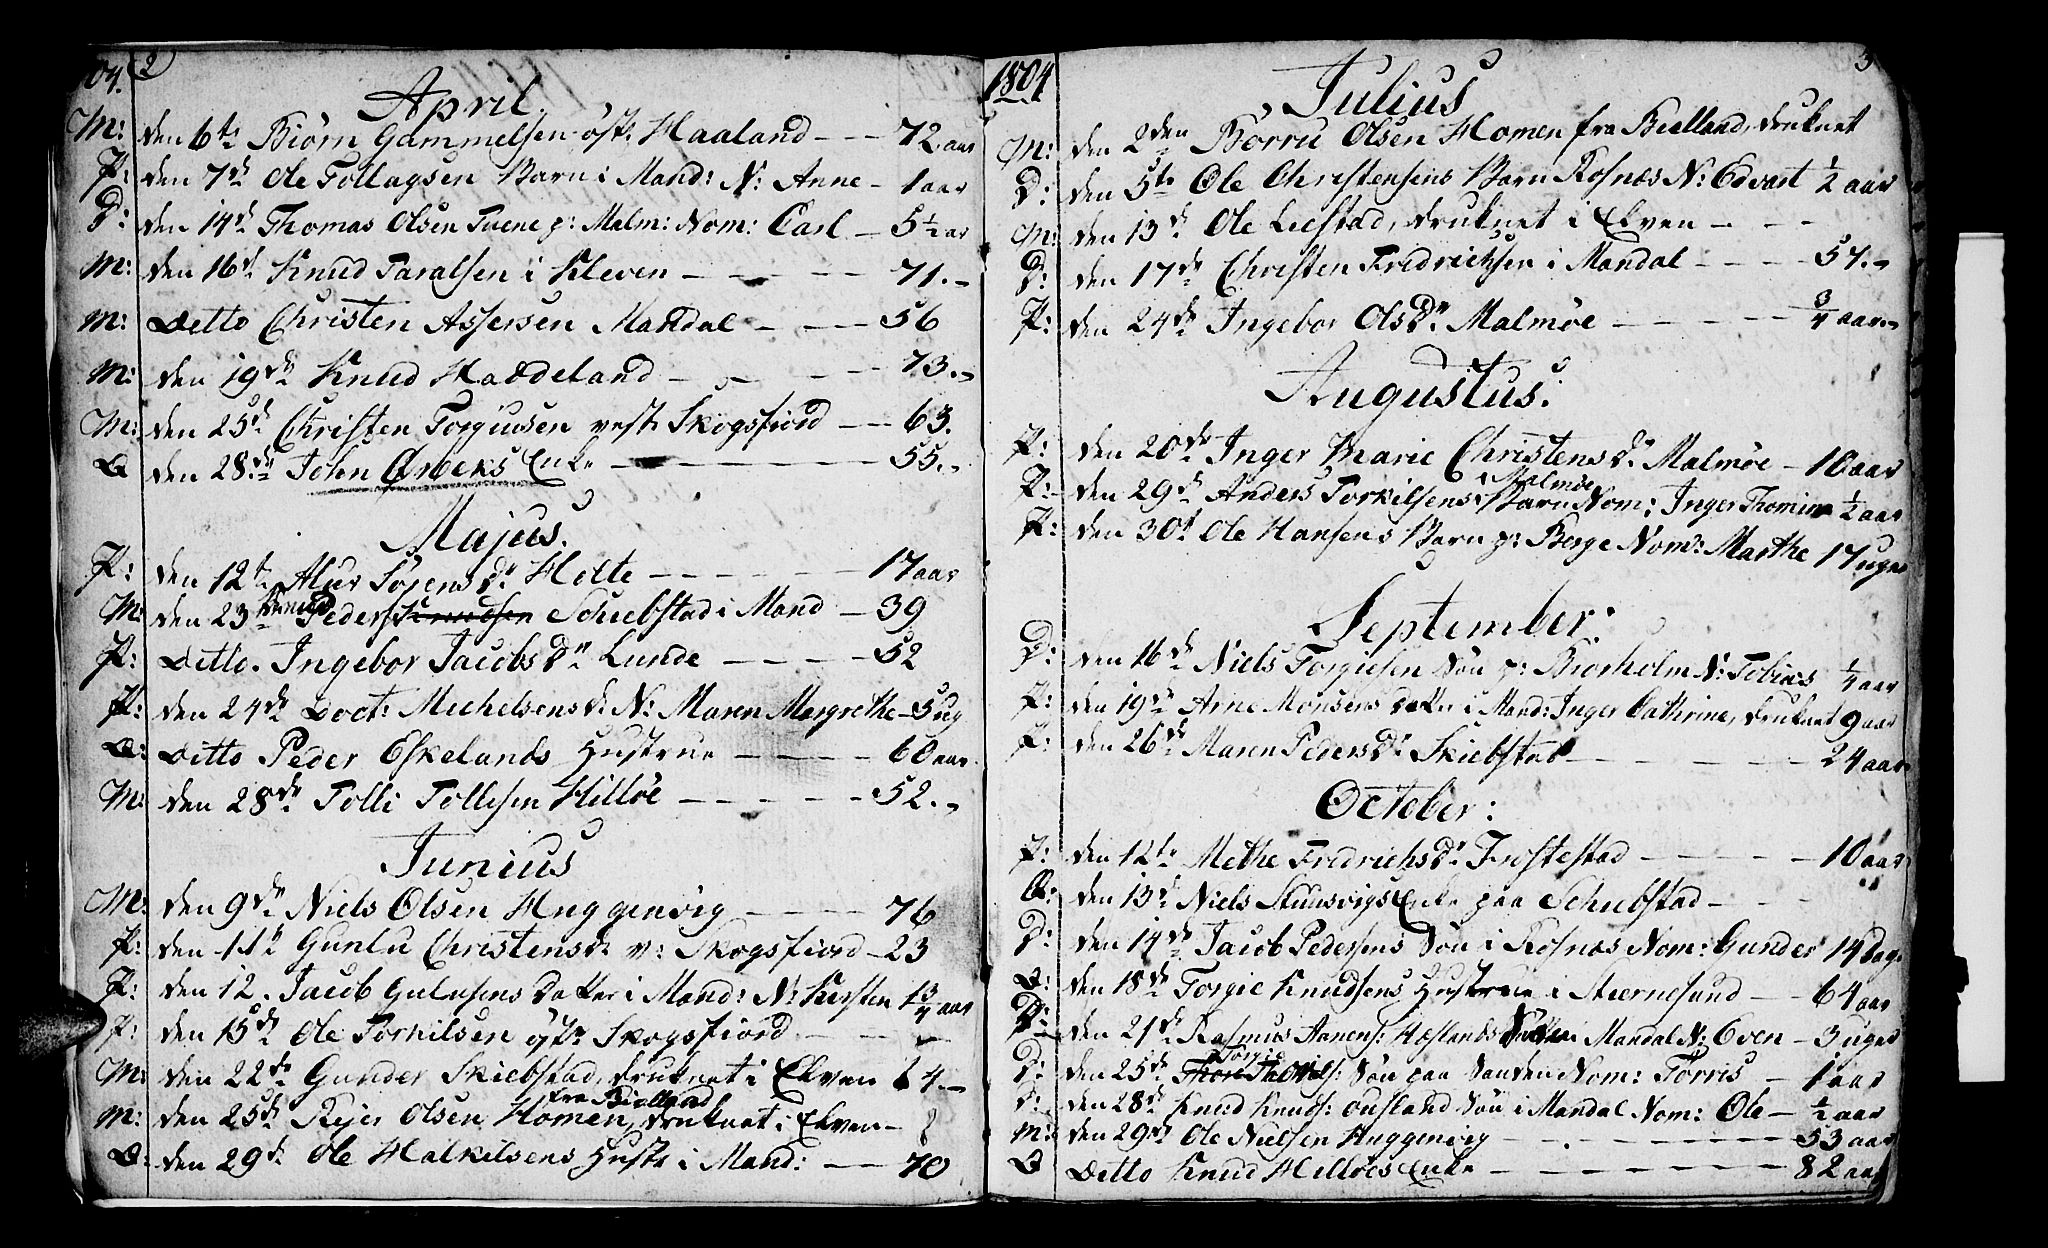 04. 2
April.
M: den 6te Biørn Gammelsen øst. Haaland - - - 72. aar
P: den 7de Ole Tollagsen Barn i Mand: N: Anne - 1 aar
D: den 14de Thomas Olsen Tuene p: Malm: Nom: Carl - 5 1/2 ar
M: den 16de Knud Taralsen i Kleven - - - - 71.-
M: Detto Christen Assersen Mandal - - - 56
M: den 19de Knud Haddeland - - - - 73.-
M: den 25de Christen Torgiusen vest. Skogsfiord - - 63.
Q den 28de John Ørbeks Enke - - - - 55.-
Majus.
P: den 12te Sørens dr Holte - - - - 17 aar
M: den 23de Knud Peders Knudsen Schiebstad i Mand - 39
P: Detto. Ingebor Jacobs Dr Lunde - - - - 52
P: den 24de Doct: Michelsens d: N: Maren Margrethe - 5 ug
Q: Ditto Peder Eskelands Hustrue - - - - 60 aar
M: den 28de Tolli Tollisen Hilløe - - - - 52.-
Junius
M: den 9de Niels Olsen Huggenvig - - - - 76
P: den 11te Guntu Christens dr v: Skogsfiord - 23
P: den 12. Jacob Gulusens Datter i Mand: N: Kirsten 1 3/4 aar
P: den 15de Ole Torkilsen øst. Skogsfiord - - - -
M: den 22de Gunder Skiebstad, druknet i Elven 64.-
fra Bielland
M: den 25de Rejer Olsen Homen, druknet i Elven -
Q: den 29de Ole Halkilsens Hustr i Mand: - - - 70
1804 3
Julius
M: den 2den Børru Olsen Homen fra Bielland, druknet
D: den 5te Ole Christensens Barn Rosnæs N: Edvart 1/2 aar
M: den 13de Ole Liestad, druknet i Elven - - -
D: den 17de Christen Fridrichsen i Mandal - - - - 57.-
P: den 24de Ingebor Ols Dr Malmøe - - - - 3/4 aar.-
Augustus.
P: den 20de Inger Marie Christens Dr Malmøe - 10 aar
i Malmøe
P: den 29de Anders Torkilsens Barn Nom: Inger Thomine 1/2 aar
P: den 30te Ole Hansens Barn p: Berge Nom: Marthe 17 uger
September:
D: den 16de Niels Torgiesen Søn p: Biorholm N: Tobias 1/4 aar
P: den 19de Arne Monsens datr i Mand: Inger Cathrine, druknet 9 aar
P: den 26de Maren Peders Dr Skiebstad - - - - 24 aar
October:
P: den 12te Methe Fridrichs Dr Frostestad - - - - 10 aar
Q: den 13de Niels Stuusvigs Enke paa Schiebstad - - -
D: den 14de Jacob Pedersens Søn i Rosnæs Nom: Gunder 14 dag.
Q: den 18de Torgie Knudsens Hustrue i Stiernesund - - 64 aar
P: den 21de Rasmus Aanens: Hæslands i Mandal N: Even - 3 uger
Torgie
D: den 25de Søn paa Sanden Nom: Torris - 1 aar
D: den 28de Knud Knuds: Ousland Søn i Mandal Nom: Ole - 1/2 aar
M: den 29de Ole Nielsen Huggenvig - - - - 53 aar
Q Detto Knud Hilløes Enke - - - - 82 aar